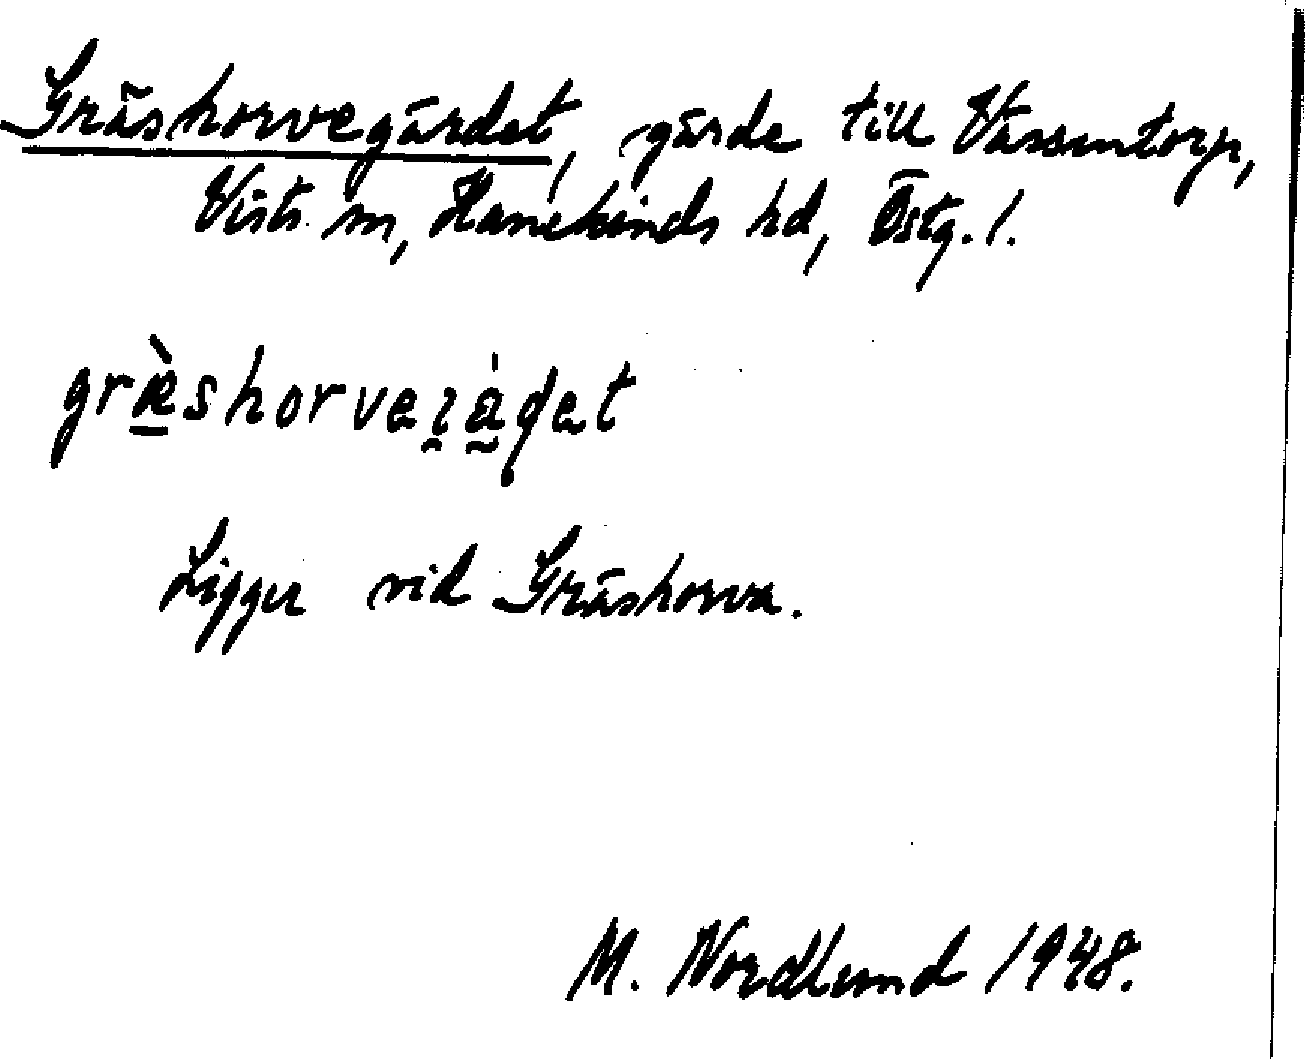 Gräshorvegärdet, gärde till Vässentorp,
Vists sn, Hanekinds hd, Östg. l.
græ̀shorveɿàɖet
Ligger vid Gräshorva.
M. Nordlund 1948.